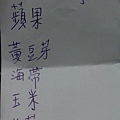 蘋果
黃豆芽
海帶
玉米